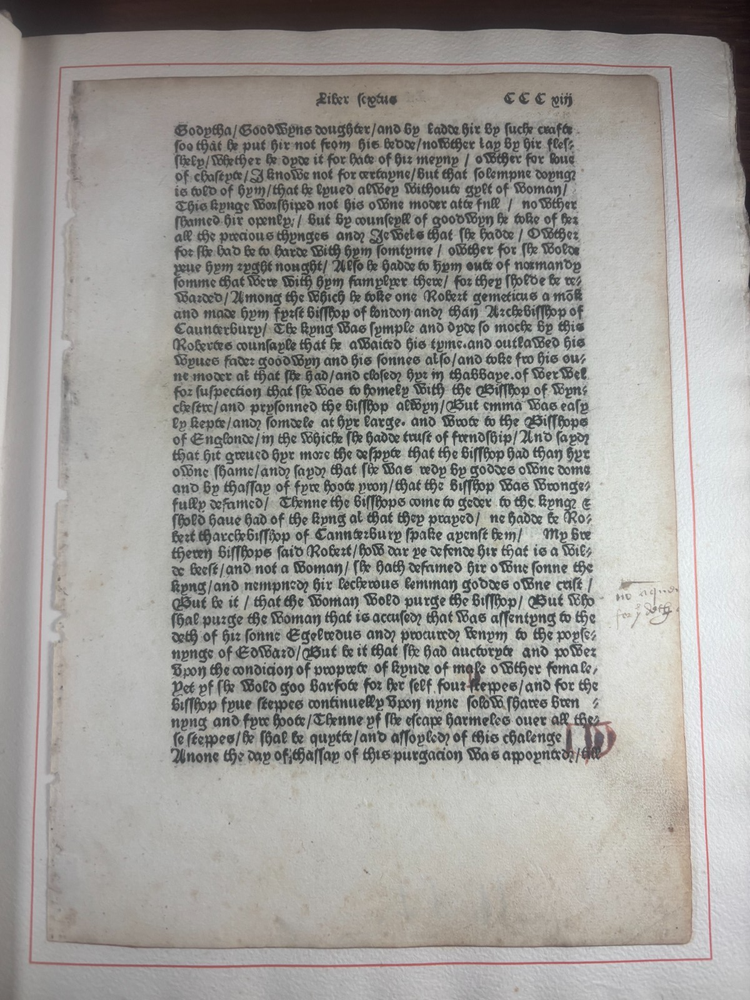 Liber sextus CCC xiij
Godytha/Goodwyns doughter/and by ladde hir by suche crafte
soo that he put hir not from his bedde/nowther lay by hir fles⸗
shely/whether he dyde it for hate of hir meyny / owther for loue
of chastyte/I knowe not for certayne/but that solempne doynge
is told of hym/that he lyued alwey withoute gylt of woman/
This kynge worshiped not his owne moder atte full / nowther
shamed hir openly/ but by counseyll of goodwyn he toke of her
all the precious thynges and Jewels that she hadde / Owther
for she had be to harde with hym somtyme / owther for she wolde
yeue hym ryght nought/ Also he hadde to hym oute of normandy
somme that were with hym famylyer there/ for they sholde be re⸗
warded/ Among the which he toke one Robert gemeticus a mōk
and made hym fyrst bisshop of london and than Archebisshop of
Caunterbury/ The kyng was symple and dyde so moche by this
Robertes counsayle that he awaited his tyme.and outlawed his
wyues fader goodwyn and his sonnes also/and toke fro his ou⸗
ne moder al that she had/and closed hyr in thabbaye.of werwel
for suspection that she was to homely with the Bisshop of wyn⸗
chestre/and prysonned the bisshop alwyn/But emma was easy
ly kepte/and somdele at hyr large. and wrote to the Bisshops
of Englonde/in the whiche she hadde trust of frendship/And sayd
that hit greued hyr more the despyte that the bisshop had than hyr
owne shame/and sayd that she was redy by goddes owne dome
and by thassay of fyre hoote yron/that the bisshop was wronge⸗
fully defamed/ Thenne the bisshops come to geder to the kyng &
shold haue had of the kyng al that they prayed/ ne hadde be Ro⸗
bert tharchebisshop of Caunterbury spake ayenst hem/ My bre
theren bisshops said Robert/how dar ye defende hir that is a wil⸗
de beest/and not a woman/ she hath defamed hir owne sonne the
kyng/and nempned hir lecherous lemman goddes owne crist /
But be it / that the woman wold purge the bisshop/ But who
shal purge the woman that is accused that was assentyng to the
deth of hir sonne Egelredus and procured venym to the poyse⸗
nynge of Edward/But be it that she had auctoryte and power
vpon the condicion of proprete of kynde of male owther female,
Yet yf she wold goo barfote for her self four steppes/and for the
bisshop fyue steppes continuelly vpon nyne solow shares bren ⸗
nyng and fyre hoote/Thenne yf she escape harmeles ouer all the⸗
se steppes/he shal be quytte/and assoyled of this chalenge
Anone the day of thassay of this purgacion was appoynted/
no
for